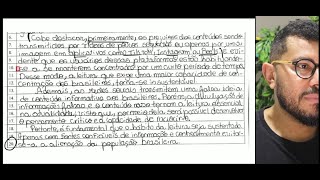 Cabe destacar, primeiramente, os prejuízos dos conteúdos sendo
transmitidos por vídeos de poucos segundos ou apenas por uma
imagem em aplicativos como TikTok, Instagram ou
dente que os usuários dessas plataformas estão
se a se manterem concentrados por um curto período de tempo.
Desse modo, a leitura, que exige uma maior capacidade de con-
centração dos brasileiros, torna-se insustentável.
Ademais, as redes sociais transmitem uma falsa ideia
de conteúdo informativo aos brasileiros. Porém, a divulgação de
informações e o conteúdo raso tornam a leitura essencial
na atualidade, visto que, por meio dela será possível desenvolver
o pensamento crítico e a capacidade de raciocínio.
Portanto, é fundamental que o hábito da leitura seja sustentado
apenas com fontes confiáveis de informação e entretenimento
a alienação da população brasileira.